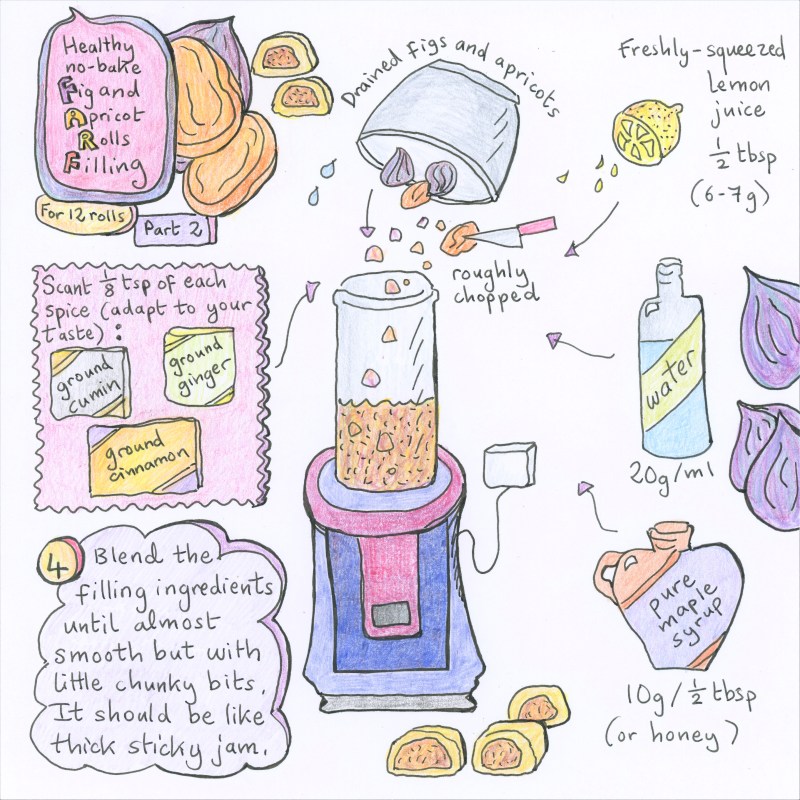 Healthy
no-bake
Fig and
Apricot
Rolls
Filling
For 12 rolls
Part 2
Drained figs and apricots
Freshly-squeezed
Lemon
juice
½ tbsp
(6-7g)
roughly
chopped
Scant ⅛ tsp of each
spice (adapt to your
taste) :
ground
cumin
ground
ginger
ground
cinnamon
water
20g/ml
pure
maple
syrup
10g/½ tbsp
(or honey)
4
Blend the
filling ingredients
until almost
smooth but with
little chunky bits.
It should be like
thick sticky jam.